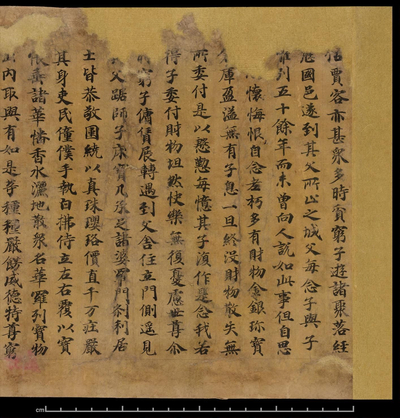 估賈客亦甚衆多時貧窮子遊諸聚落經
歷國邑遂到其父所止之城父每念子與子
離別五十餘年而未曾向人說如此事但自思
懷悔恨自念老朽多有財物金銀珎寶
庫盈溢無有子息一旦終沒財物散失無
所委付是以慇懃每憶其子復作是念我若
得子委付財物坦然快樂無復憂慮世尊尒
窮子傭賃展轉遇到父舍住立門側遙見
父踞師子床寶几承足諸婆羅門剎利居
士皆恭敬圍繞以真珠瓔珞價直千万莊嚴
其身吏民僮僕手執白拂侍立左右覆以寶
帳垂諸華幡香水灑地散衆名華羅列寶物
出內取與有如是等種種嚴飾威德特尊窮
cm